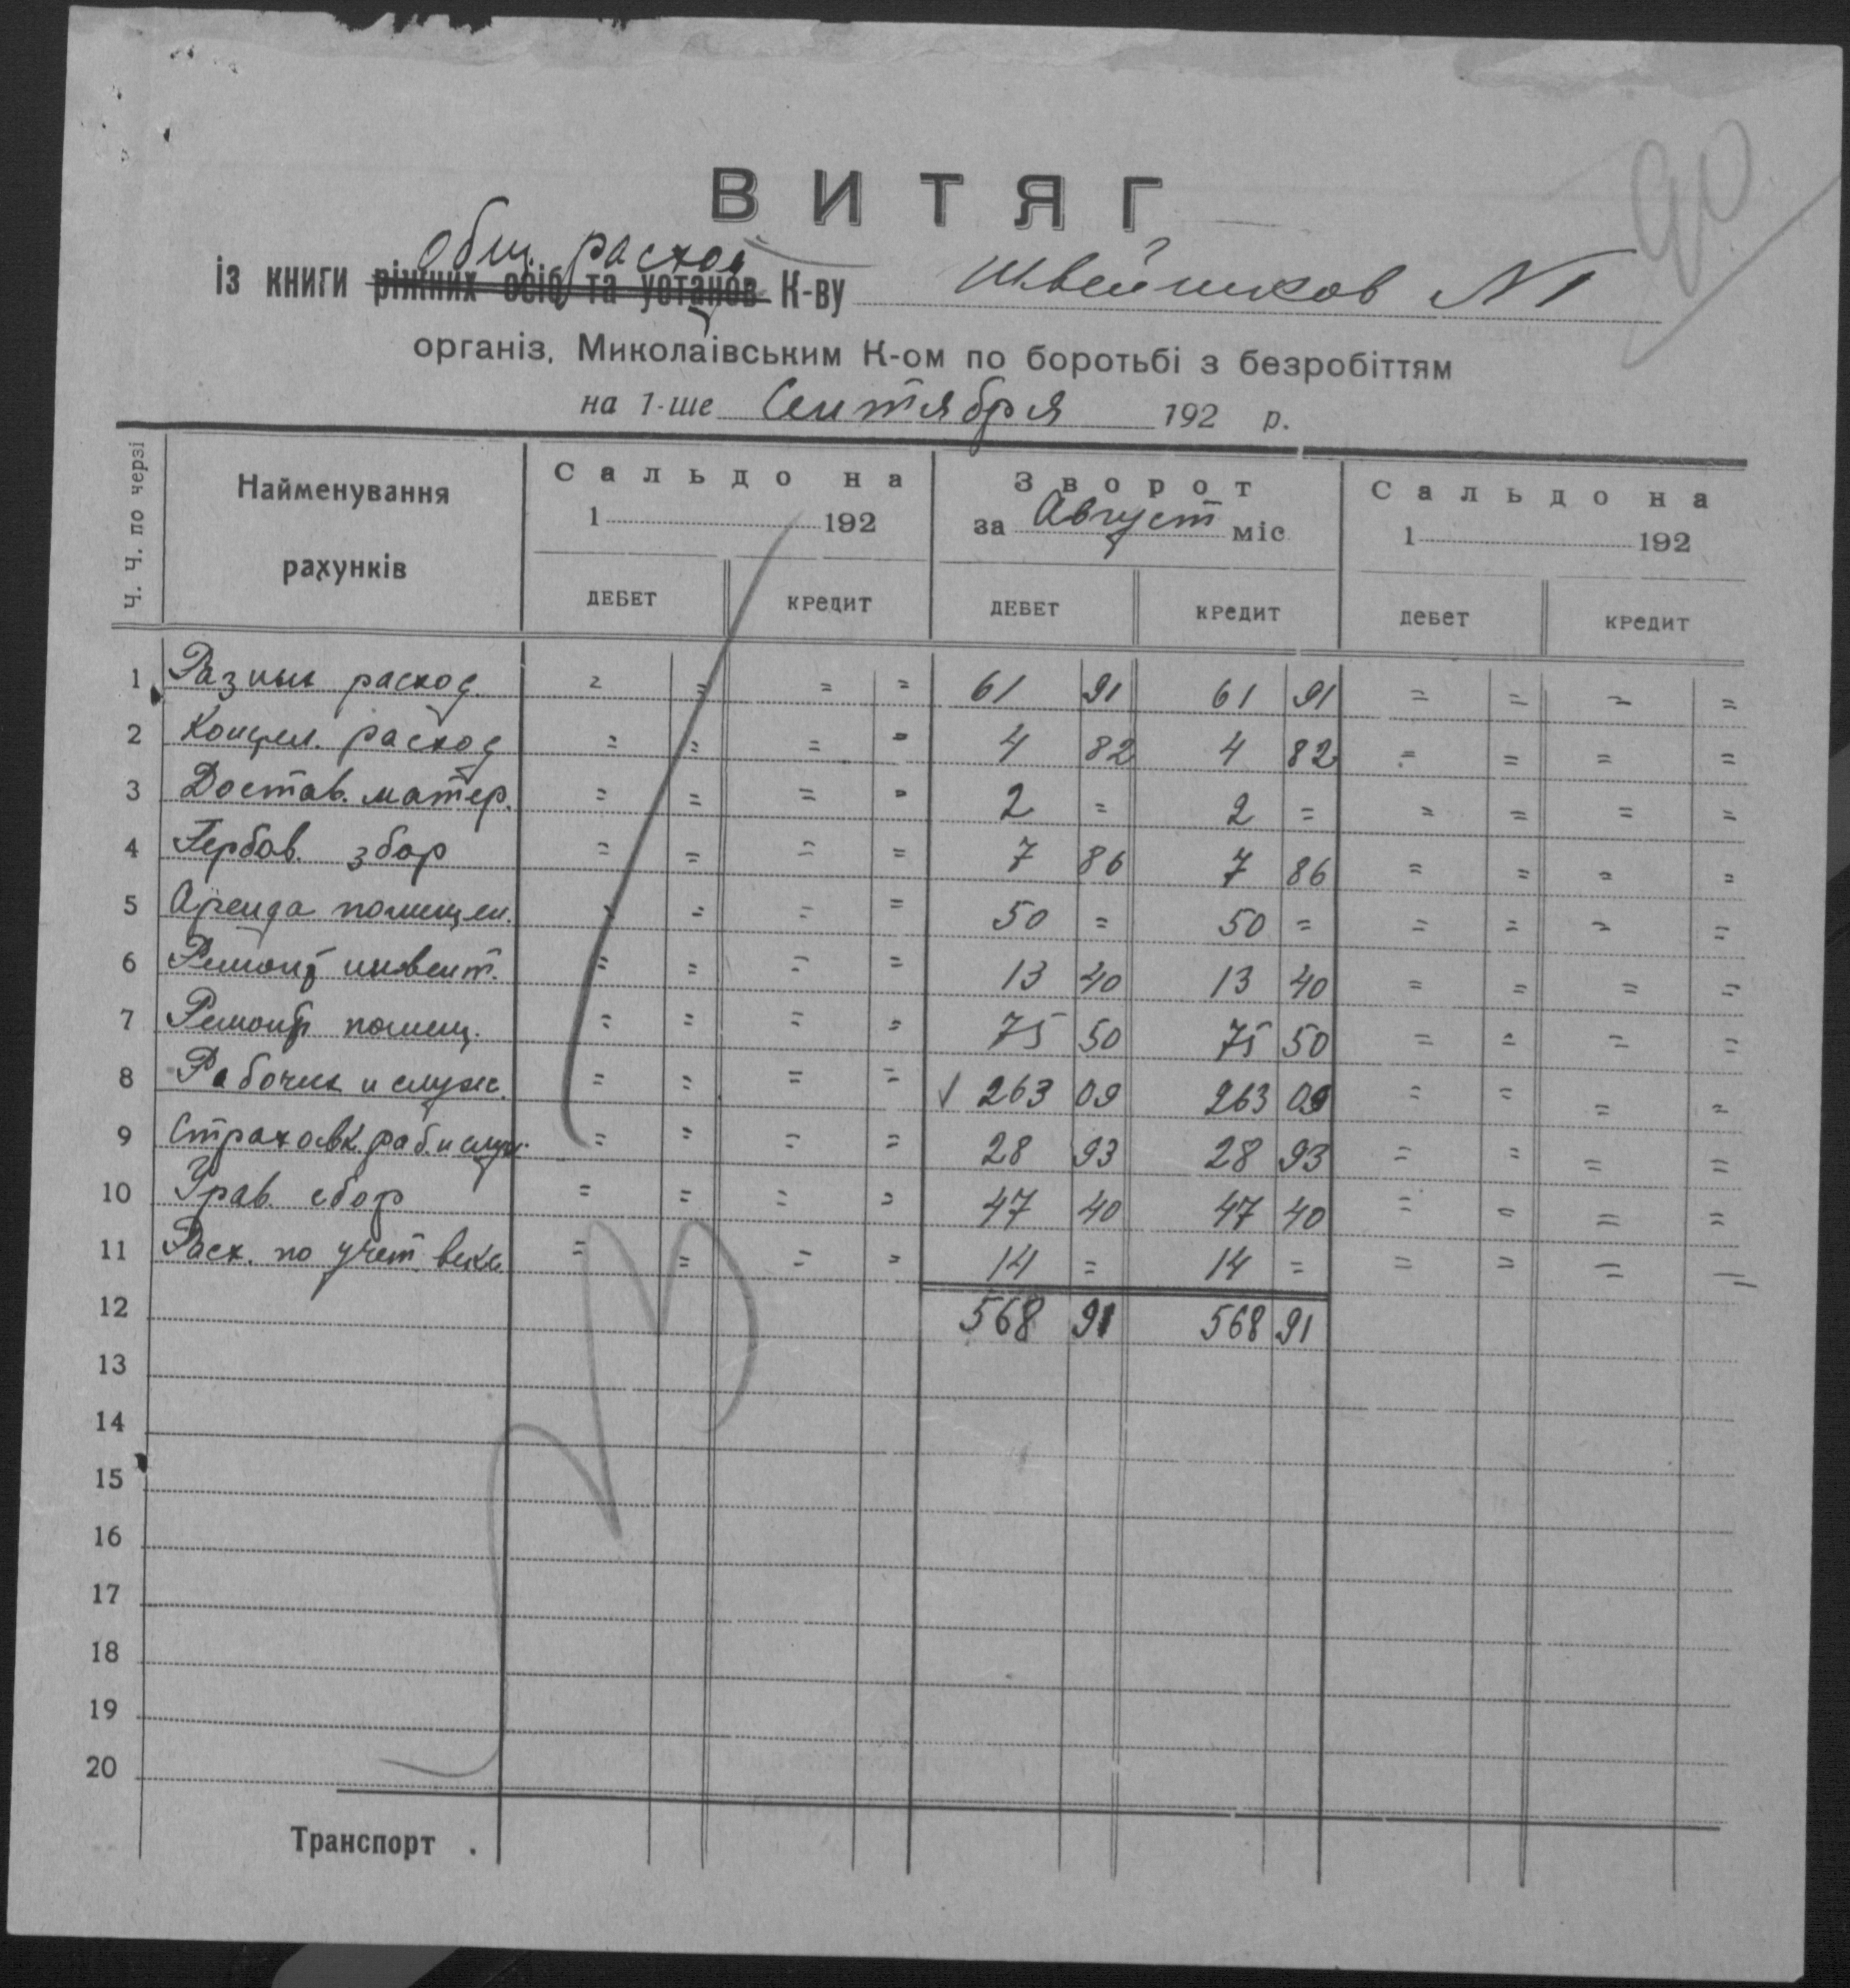 90
ВИТЯГ
общ. расход
із книги ріжних осіб та установ К-ву Швейников №1
організ. Миколаївським К-ом по боротьбі з безробіттям
на 1-ше Сентября 192 р.
Ч. Ч. по черзі
Найменування рахунків
Сальдо на
1 192
Зворот
за Август міс
Сальдо на
1 192
ДЕБЕТ КРЕДИТ ДЕБЕТ КРЕДИТ ДЕБЕТ КРЕДИТ
1 Разные расход. = = = = 61 91 61 91 = = = =
2 Концел. расход = = = = 4 82 4 82 = = = =
3 Достав. матер. = = = = 2 = 2 = = = = =
4 Гербов. збор = = = = 7 86 7 86 = = = =
5 Аренда помещен. = = = = 50 = 50 = = = = =
6 Ремонт инвент. = = = = 13 40 13 40 = = = =
7 Ремонт помещ. = = = = 75 50 75 50 = = = =
8 Рабочих и служ. = = = = √ 263 09 263 09 = = = =
9 Страховк. раб. и служ. = = = = 28 93 28 93 = = = =
10 Урав. сбор = = = = 47 40 47 40 = = = =
11 Расх. по учет. векс = = = = 14 = 14 = = = = =
12 568 91 568 91
13
14
15
16
17
18
19
20
Транспорт .